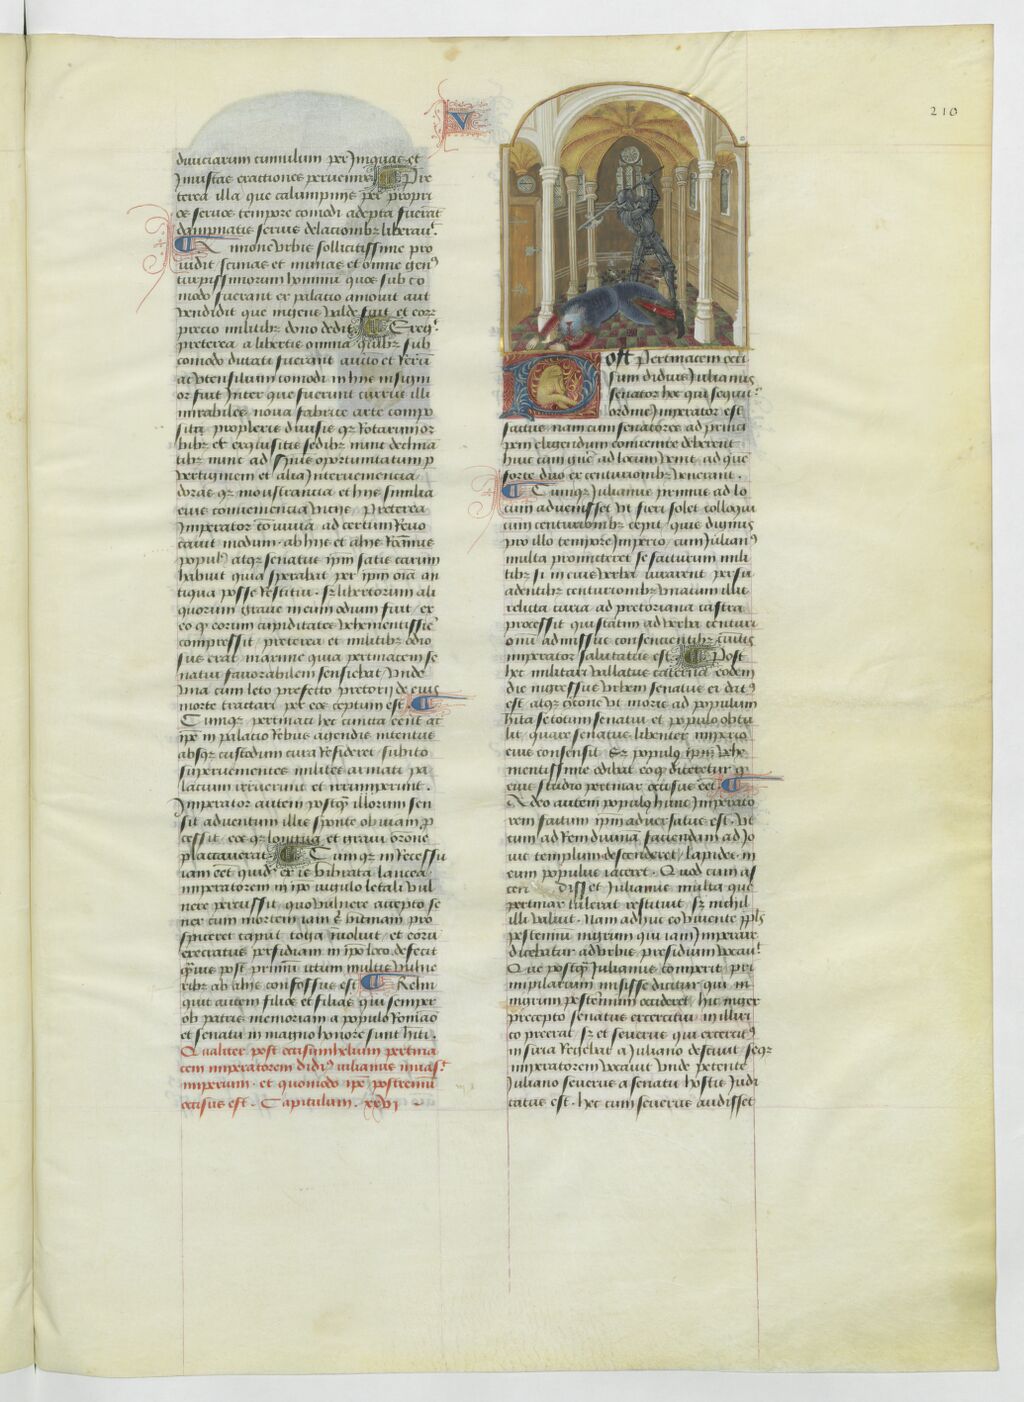 V
210
diuiciarum cumulum per iniquas et
iniustas exactiones peruenire Pre
terea illa que calumpnijs per propri
os seruos tempore comodi adepta fuerat
dampnatis seruis delatoribꝫ liberauit
Annone vrbis sollicitissime pro
uidit scurras et et omne genus
turpissimorum hominum quos sub co
modo fuerant ex palatio amouit aut
vendidit que ingens valde fuit et eorum
precio militibꝫ dono dedit
preterea a libertis omnia quibꝫ sub
comodo ditati fuerant
ac vtensilium comodi in hijs insigni
or fuit inter que fuerunt currus illi
mirabiles noua fabrice arte compo
siti
et exquisitis sedibꝫ nunc declina
tibꝫ nunc ad oportunitatum p
vertiginem et alia iter
et hijs similia
eius conueniencia vicijs. Preterea
imperator conuiuia ad certum reuo
cauit modum. ab hijs et alijs Romanus
populus atqꝫ senatus ipm satis carum
habuit quia sperabat per ipm oīa an
tiqua posse restitui. sꝫ libertorum ali
quorum graue in eum odium fuit / ex
eo ꝙ eorum cupiditates vehementissie
compressit / preterea et militibꝫ odio
sus erat maxime quia pertinacem se
natui fauorabilem sensiebat / vnde
vna cum leto prefecto pretorij de eius
morte tractari per eos ceptum est.
Cumqꝫ pertinaci hec cuncta
ipe in palatio rebus agendis intentus
absqꝫ custodum cura resideret / subito
superuenientes milites armati pa
lacium intrauerunt et irruperunt.
Imperator autem postqꝫ illorum sen
sit aduentum illis sponte obuiam p
cessit eos qꝫ longua et graui orōne
placauerat Cumqꝫ in recessu
iam eēt vibrata lancea
imperatorem in ipo iugulo letali vul
nere percussit quo vulnere accepto se
nex cum mortem iam
spiceret caput toga inuoluit / et eorum
execratus perfidiam in ipo loco defecit
quis post primum ictum multis vulne
ribꝫ ab alijs confossus est Relin
quit autem filios et filias qui semper
ob patris memoriam a populo Romāo
et senatu in magno honore sunt hīti.
Qualiter post occisum helium pertina
cem imperatorem didius iulianus inuasit
imperium. et quomodo ipe postremum
occisus est. Capitulum. xxvi.
Post Pertinacem occi
sum didius Iulianus
senator hec qui sequitur
ordine imperator est
factus. nam cum senatores ad princi
pem eligendum conuenire deberent
huic cum ad locum venit ad quem
forte duo ex centurionibꝫ venerant.
Cumqꝫ Iulianus primus ad lo
cum aduenisset vt fieri solet colloqui
cum centurionibꝫ cepit / quis dignus
pro illo tempore imperio / cum Iulianus
multa promitteret se facturum mili
tibꝫ si in eius verba iurarent persu
adentibꝫ centurionibꝫ
relicta curia ad pretoriana castra
processit qui statim ad verba centuri
onum admissus consencientibꝫ
imperator salutatus est. Post
hec militari vallatus caterua eodem
die ingressus vrbem senatus ei datus
est atqꝫ vt moris ad populum
hita se totum senatui et populo obtu
lit / quare senatus libenter imperio
eius consensit. Sꝫ populus ipm vehe
mentissime odibat eo ꝙ diceretur ꝙ
eius studio pertinax occisus eēt.
Adeo autem populus hunc imperato
rem factum ipm aduersatus est. vt
cum ad rem diuinam faciendam ad io
uis templum descenderet / lapides in
eum populus iaceret. Quod cum as
cendisset Iulianus multa que
pertinax tulerat restituit / sꝫ nichil
illi valuit. nam adhuc eo viuente ppls
pestennium nigrum qui iam imperare
dicebatur ad vrbis presidium vocauit
Que postqꝫ Iulianus comperit / pri
mipilarium misisse dicitur qui ni
nigrum pestennium occideret / hic niger
precepto senatus exercitui in illiri
co preerat / sꝫ et seuerus qui exercitus
in siria regebat a Iuliano desciuit seqꝫ
imperatorem vocauit vnde petente
Iuliano seuerus a senatu hostis iudi
catus est. hec cum seuerus audisset